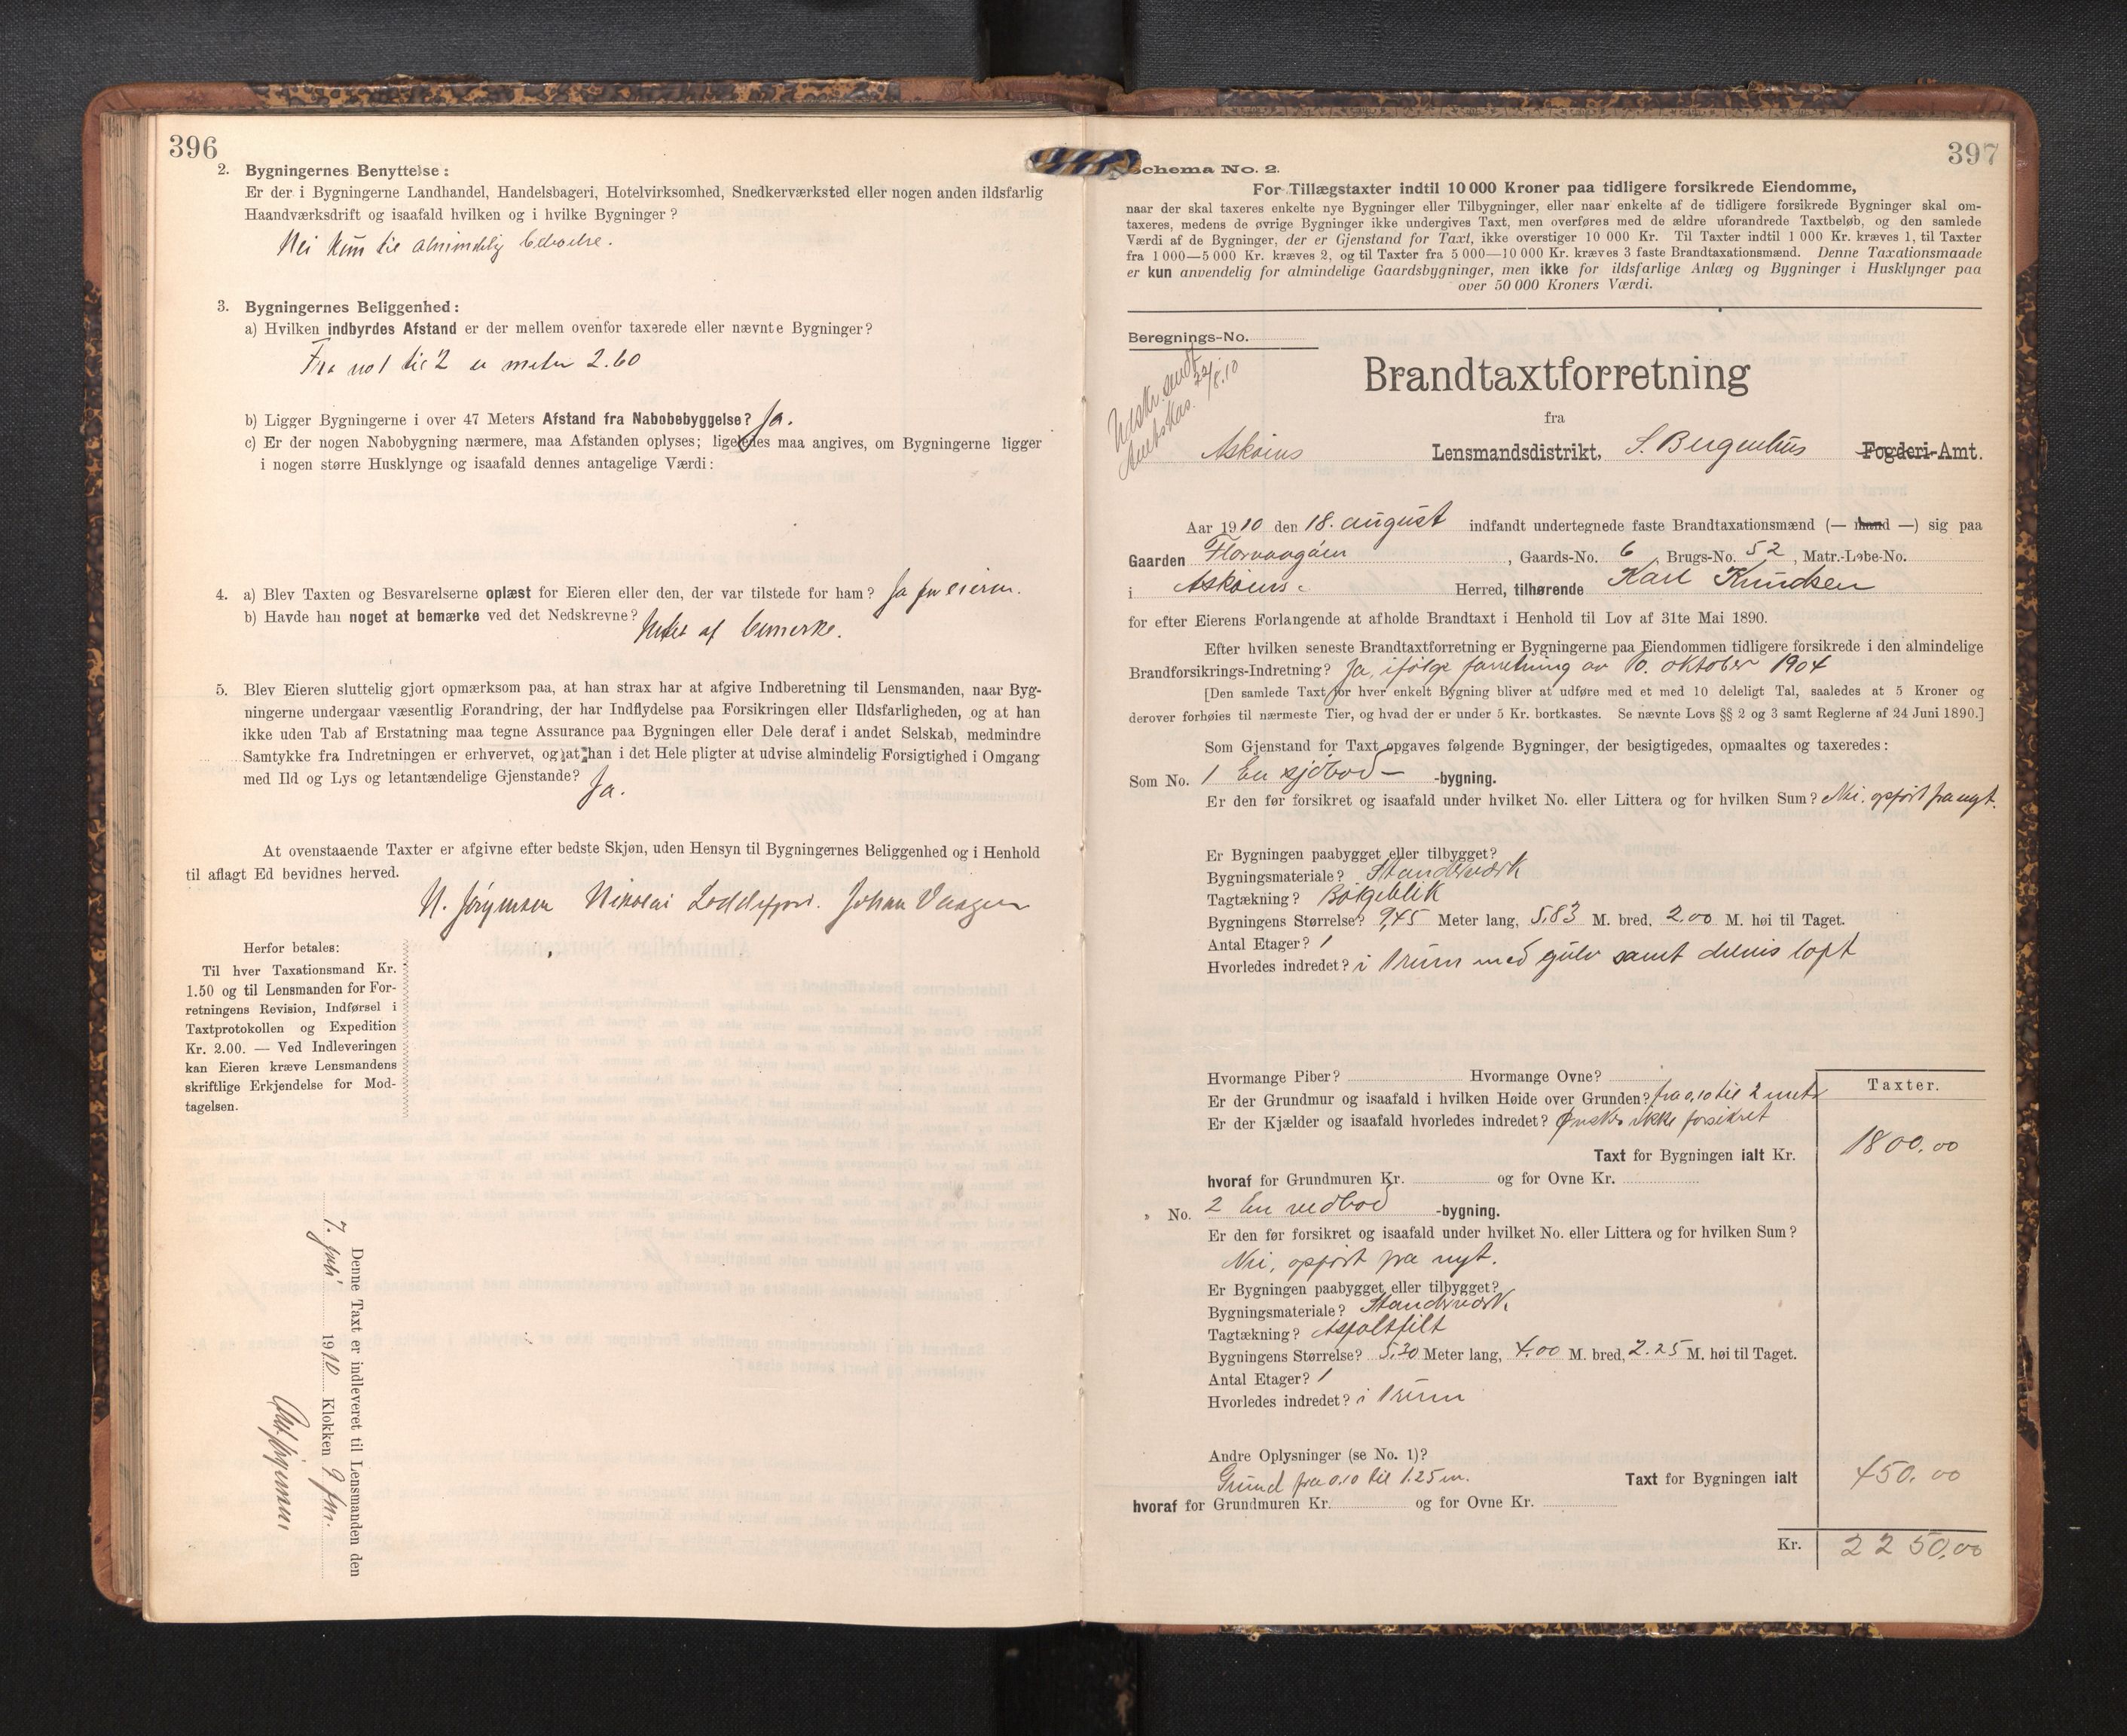 396
2. Bygningernes Benyttelse:
Er der i Bygningerne Landhandel, Handelsbageri, Hotelvirksomhed, Snedkerværksted eller nogen anden ildsfarlig
Haandværksdrift og isaafald hvilken og i hvilke Bygninger?
Nei kun til almindelig beboelse.
3. Bygningernes Beliggenhed:
a) Hvilken indbyrdes Afstand er der mellem ovenfor taxerede eller nævnte Bygninger?
Fra no 1 til 2 er meter 2.60
b) Ligger Bygningerne i over 47 Meters Afstand fra Nabobebyggelse? Ja.
c) Er der nogen Nabobygning nærmere, maa Afstanden oplyses; ligeledes maa angives, om Bygningerne ligger
i nogen større Husklynge og isaafald dennes antagelige Værdi:
4. a) Blev Taxten og Besvarelserne oplæst for Eieren eller den, der var tilstede for ham? Ja for eieren.
b) Havde han noget at bemærke ved det Nedskrevne? Intet at bemerke.
5. Blev Eieren sluttelig gjort opmærksom paa, at han strax har at afgive Indberetning til Lensmanden, naar Byg-
ningerne undergaar væsentlig Forandring, der har Indflydelse paa Forsikringen eller Ildsfarligheden, og at han
ikke uden Tab af Erstatning maa tegne Assurance paa Bygningen eller Dele deraf i andet Selskab, medmindre
Samtykke fra Indretningen er erhvervet, og at han i det Hele pligter at udvise almindelig Forsigtighed i Omgang
med Ild og Lys og letantændelige Gjenstande? Ja.
At ovenstaaende Taxter er afgivne efter bedste Skjøn, uden Hensyn til Bygningernes Beliggenhed og i Henhold
til aflagt Ed bevidnes herved.
N. Jörgensen Nikolai Loddefjord. Johan Vaagen
Herfor betales:
Til hver Taxationsmand Kr.
1.50 og til Lensmanden for For-
retningens Revision, Indførsel i
Taxtprotokollen og Expedition
Kr. 2.00. — Ved Indleveringen
kan Eieren kræve Lensmandens
skriftlige Erkjendelse for Mod-
tagelsen.
Denne Taxt er indleveret til Lensmanden den
7. juli 1910 Klokken 9 fm.
397
Schema No. 2.
For Tillægstaxter indtil 10 000 Kroner paa tidligere forsikrede Eiendomme,
naar der skal taxeres enkelte nye Bygninger eller Tilbygninger, eller naar enkelte af de tidligere forsikrede Bygninger skal om-
taxeres, medens de øvrige Bygninger ikke undergives Taxt, men overføres med de ældre uforandrede Taxtbeløb, og den samlede
Værdi af de Bygninger, der er Gjenstand for Taxt, ikke overstiger 10 000 Kr. Til Taxter indtil 1 000 Kr. kræves 1, til Taxter
fra 1 000—5 000 Kr. kræves 2, og til Taxter fra 5 000—10 000 Kr. kræves 3 faste Brandtaxationsmænd. Denne Taxationsmaade
er kun anvendelig for almindelige Gaardsbygninger, men ikke for ildsfarlige Anlæg og Bygninger i Husklynger paa
over 50 000 Kroners Værdi.
Beregnings-No.
Udskr. sendt
Amtskas. 22/8.10
Brandtaxtforretning
fra
Askøins Lensmandsdistrikt, S. Bergenhus Fogderi-Amt.
Aar 1910 den 18. august indfandt undertegnede faste Brandtaxationsmænd (— mand —) sig paa
Gaarden Florvaagøen, Gaards-No. 6, Brugs-No. 52, Matr.-Løbe-No.
i Askøins Herred, tilhørende Karl Knudsen
for efter Eierens Forlangende at afholde Brandtaxt i Henhold til Lov af 31te Mai 1890.
Efter hvilken seneste Brandtaxtforretning er Bygningerne paa Eiendommen tidligere forsikrede i den almindelige
Brandforsikrings-Indretning? Ja, ifølge forretning av 10. oktober 1904
[Den samlede Taxt for hver enkelt Bygning bliver at udføre med et med 10 deleligt Tal, saaledes at 5 Kroner og
derover forhøies til nærmeste Tier, og hvad der er under 5 Kr. bortkastes. Se nævnte Lovs §§ 2 og 3 samt Reglerne af 24 Juni 1890.]
Som Gjenstand for Taxt opgaves følgende Bygninger, der besigtigedes, opmaaltes og taxeredes:
Som No. 1 En sjöbod -bygning.
Er den før forsikret og isaafald under hvilket No. eller Littera og for hvilken Sum? Nei. opført fra nyt.
Er Bygningen paabygget eller tilbygget?
Bygningsmateriale? Standerverk
Tagtækning? Bölgeblik
Bygningens Størrelse? 9,45 Meter lang, 5,83 M. bred, 2.00 M. høi til Taget.
Antal Etager? 1
Hvorledes indredet? i 1 rum med gulv samt delvis loft
Hvormange Piber? Hvormange Ovne?
Er der Grundmur og isaafald i hvilken Høide over Grunden? fra 0,10 til 2 metr
Er der Kjælder og isaafald hvorledes indredet? Ønskes ikke forsikret
Taxter.
Taxt for Bygningen ialt Kr. 1800.00
hvoraf for Grundmuren Kr. og for Ovne Kr.
" No. 2 En vedbod -bygning.
Er den før forsikret og isaafald under hvilket No. eller Littera og for hvilken Sum?
Nei, opført fra nyt.
Er Bygningen paabygget eller tilbygget?
Bygningsmateriale? Standerverk
Tagtækning? Asfaltfilt
Bygningens Størrelse? 5.30 Meter lang, 4.00 M. bred, 2.25 M. høi til Taget.
Antal Etager? 1
Hvorledes indredet? i 1 rum
Andre Oplysninger (se No. 1)?
Grund fra 0.10 til 1.25 m. Taxt for Bygningen ialt 450.00
hvoraf for Grundmuren Kr. og for Ovne Kr.
Kr. 2250,00